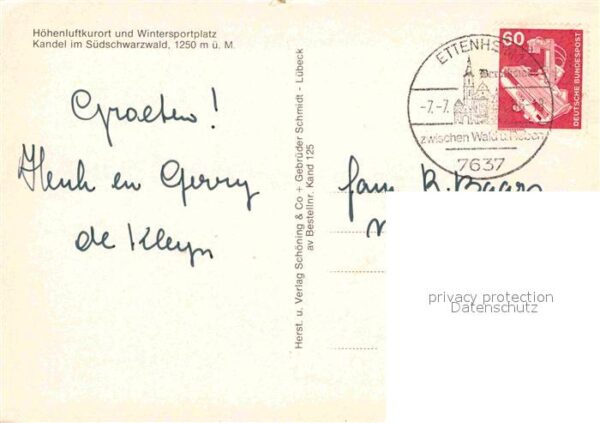 Höhenluftkurort und Wintersportplatz
Kandel im Südschwarzwald, 1250 m ü. M.
Groeten!
Henk en Gerry
de Kleyn
Herst. u. Verlag Schöning & Co + Gebrüder Schmidt - Lübeck
av Bestellnr. Kand 125
60
DEUTSCHE BUNDESPOST
-7.-7.
zwischen Wald u. Reben
7637
fam. R. Baars
privacy protection
Datenschutz